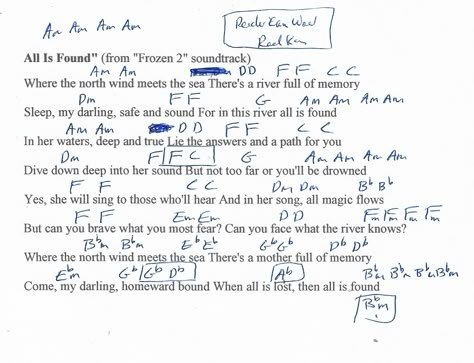 Am Am Am Am
All Is Found" (from "Frozen 2" soundtrack)
Am Am D D F F C C
Where the north wind meets the sea There's a river full of memory
Dm F F G Am Am Am Am
Sleep, my darling, safe and sound For in this river all is found
Am Am D D F F C C
In her waters, deep and true Lie the answers and a path for you
Dm F F C G Am Am Am Am
Dive down deep into her sound But not too far or you'll be drowned
F F C C Dm Dm Bb Bb
Yes, she will sing to those who'll hear And in her song, all magic flows
F F Em Em D D Fm Fm Fm Fm
But can you brave what you most fear? Can you face what the river knows?
Bbm Bbm Eb Eb Gb Gb Db Db
Where the north wind meets the sea There's a mother full of memory
Ebm Gb Gb Db Ab Bbm Bbm Bbm Bbm
Come, my darling, homeward bound When all is lost, then all is found
Bbm